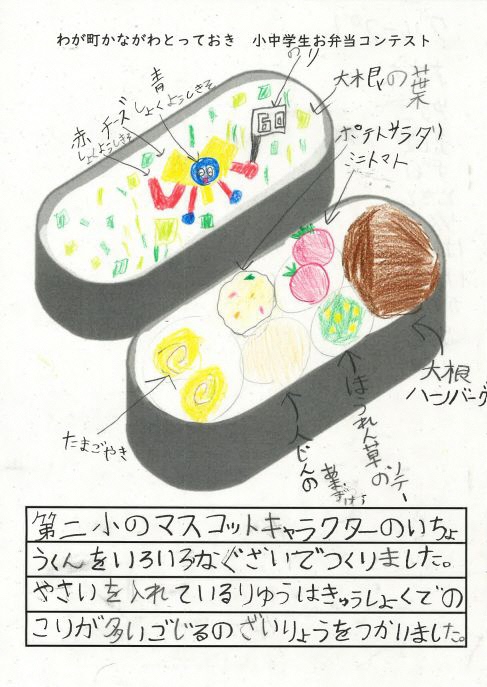 わが町かながわとっておき 小中学生お弁当コンテスト
のり
大根の葉
青
しょくようしきそ
チーズ
赤
しょくようしきそ
ポテトサラダ
ミニトマト
大根
ハンバーグ
ほうれん草の
ソテー
人じんの
たまごやき
第二小のマスコットキャラクターのいちょ
うくんをいろいろなぐざいでつくりました。
やさいを入れているりゅうはきゅうしょくでの
こりが多いごじるのざいりょうをつかいました。